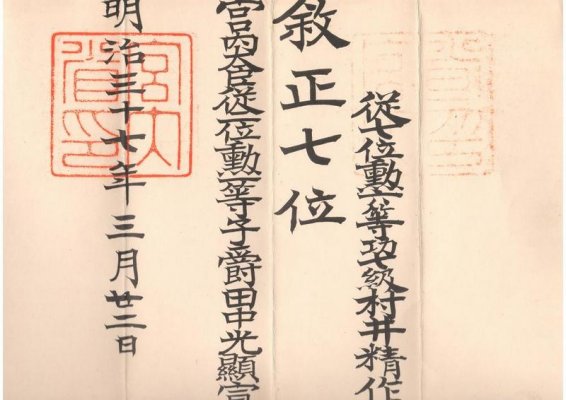 從七位勲六等功七級村井精作
敘正七位
宮内大臣從二位勲一等子爵田中光顯宣
明治三十七年三月廿二日
宮内省印